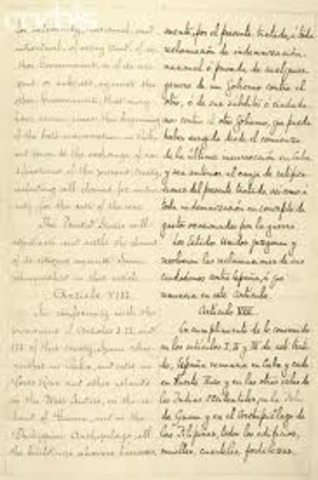 for indemnity, national and
individual, of every kind, of ei-
ther Government, or of its citi-
zens or subjects, against the
other Government, that may
have arisen since the beginning
of the late insurrection in Cuba
and prior to the exchange of rat-
ifications of the present treaty,
including all claims for indem-
nity for the cost of the war.
The United States will
adjudicate and settle the claims
of its citizens against Spain
relinquished in this article.
Article VIII.
In conformity with the
provisions of Articles I, II, and
III of this treaty, Spain relin-
quishes in Cuba, and cedes in
Porto Rico and other islands
in the West Indies, in the is-
land of Guam, and in the
Philippine Archipelago, all
the buildings, wharves, barracks,
mente, por el presente tratado, á toda
reclamacion de indemnizacion
nacional ó privada de cualquier
género de un Gobierno contra el
otro, ó de sus subditos ó ciudada-
nos contra el otro Gobierno, que pueda
haber surgido desde el comienzo
de la última insurreccion en Cuba
y sea anterior al canje de ratifica-
ciones del presente tratado, así como á
toda indemnizacion en concepto de
gastos ocasionados por la guerra.
Los Estados Unidos juzgarán y
resolverán las reclamaciones de sus
ciudadanos contra España, á que
renuncia en este Artículo.
Artículo VIII.
En cumplimiento de lo convenido
en los artículos I, II y III de este trata-
do, España renuncia en Cuba y cede
en Puerto Rico y en las otras islas de
las Indias Occidentales, en la Isla
de Guam y en el Archipiélago de
las Filipinas, todos los edificios,
muelles, cuarteles, fortalezas,